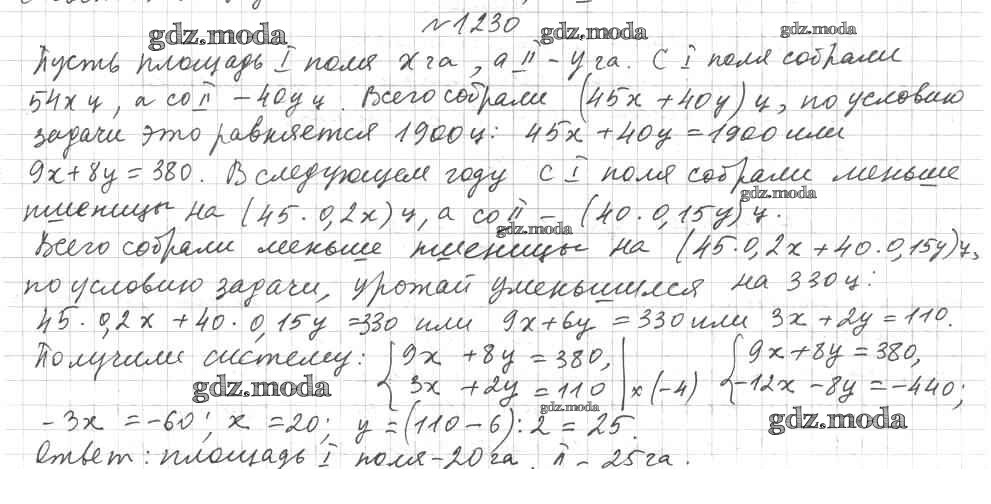 №1230
Пусть площадь I поля x га, а II – y га. С I поля собрали
54x ц, а со II – 40y ц. Всего собрали (45x + 40y) ц, по условию
задачи это равняется 1900ц: 45x + 40y = 1900 или
9x + 8y = 380. В следующем году с I поля собрали меньше
пшеницы на (45 · 0,2x) ц, а со II – (40 · 0,15y) ц.
Всего собрали меньше пшеницы на (45 · 0,2x + 40 · 0,15y) ц,
по условию задачи, урожай уменьшился на 330 ц:
45 · 0,2x + 40 · 0,15y = 330 или 9x + 6y = 330 или 3x + 2y = 110.
Получили систему: { 9x + 8y = 380, 3x + 2y = 110 | x (-4) { 9x + 8y = 380, -12x - 8y = -440;
-3x = -60; x = 20; y = (110 - 6) : 2 = 25.
Ответ: площадь I поля – 20 га, II – 25 га.
gdz.moda
gdz.moda
gdz.moda
gdz.moda
gdz.moda
gdz.moda
gdz.moda
gdz.moda